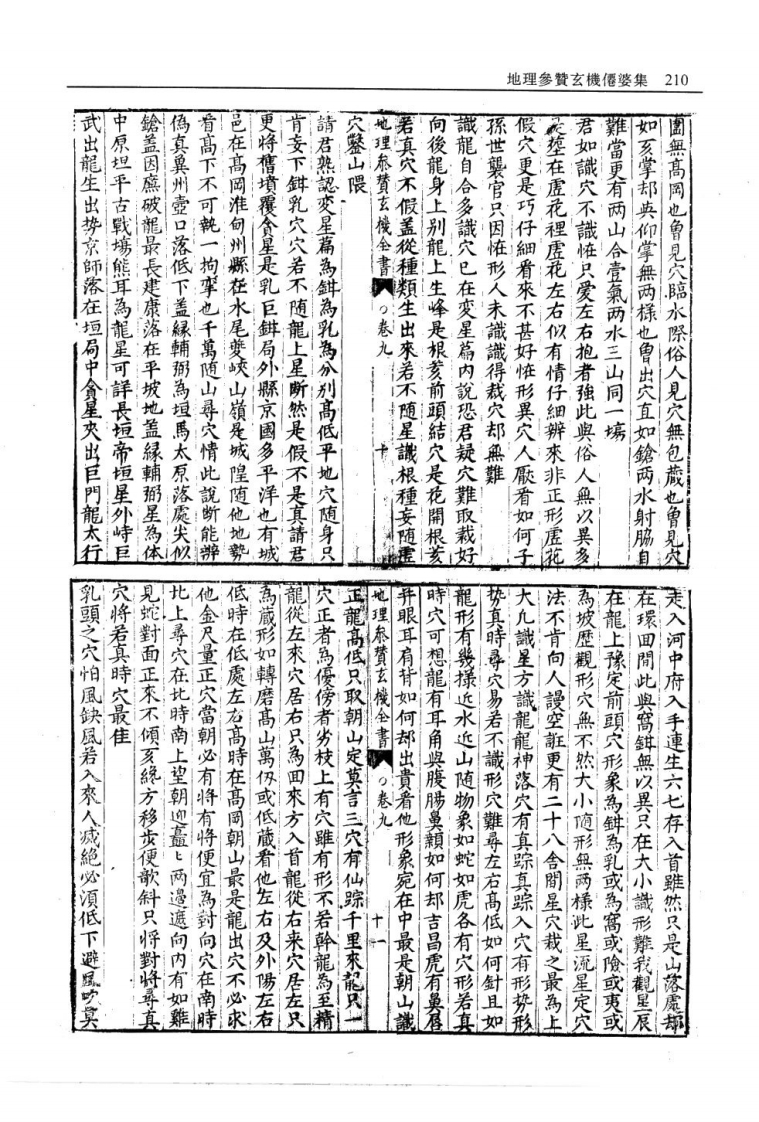 地理參贊玄機僊婆集 210
圍無高岡也曾見穴臨水際俗人見穴無包藏也曾見穴
如亥掌却與仰掌無兩樣也曾出穴直如鎗兩水射脇自
難當更有兩山合壹氣兩水三山同一塲
君如識穴不識怪只愛左右抱者強此與俗人無以異多
是塟在虛花裡虛花左右似有情仔細辨來非正形虛花
假穴更是巧仔細看來不甚好怪形異穴人厭看如何子
孫世襲官只因怪形人未識識得裁穴却無難
識龍自合多識穴已在変星篇內說恐君疑穴難取裁好
向後龍身上別龍上生峰是根荄前頭結穴是花開根荄
若真穴不假蓋從種類生出來若不随星識根種妄随虛
地理參贊玄機全書 卷九 十
穴鑿山隈
請君熟認変星篇為鉗為乳為分別高低平地穴随身只
肯妄下鉗乳穴穴若不随龍上星断然是假不是真請君
更將舊墳覆貪星是乳巨鉗局外縣京國多平洋也有城
邑在高岡淮甸州縣在水尾夔峽山嶺是城隍随他地勢
看高下不可執一拘攣也千萬随山尋穴情此說断能辨
偽真冀州壺口落低下蓋緣輔弼為垣馬太原落處尖似
鎗蓋因廉破龍最長建康落在平坡地蓋緣輔弼星為体
中原坦平古戰塲熊耳為龍星可詳長垣帝垣星外峙巨
武出龍生出勢京師落在垣局中貪星夾出巨門龍太行
走入河中府入手連生六七存入首雖然只是山落處却
在環田間此與窩鉗無以異只在大小識形難我觀星辰
在龍上豫定前頭穴形象為鉗為乳或為窩或險或夷或
為坡歷觀形穴無不然大小随形無兩樣此星流星定穴
法不肯向人謾空誑更有二十八舍間星穴裁之最為上
大凢識星方識龍龍神落穴有真踪真踪入穴有形勢形
勢真時尋穴易若不識形穴難尋左右高低如何針且如
龍形有幾樣近水近山随物象如蛇如虎各有穴形若真
時穴可想龍有耳角與腹腸鼻顙如何却吉昌虎有鼻唇
并眼耳肩背如何却出貴看他形象宛在中最是朝山識
地理參贊玄機全書 卷九 十一
正龍高低只取朝山定莫言三穴有仙踪千里來龍只一
穴正者為優傍者劣枝上有穴雖有形不若幹龍為至精
龍從左來穴居右只為囬來方入首龍從右來穴居左只
為藏形如轉磨高山萬仭或低藏看他左右及外陽左右
低時在低處左右高時在高岡朝山最是龍出穴不必求
他金尺量正穴當朝必有將有將便宜為對向穴在南時
北上尋穴在北時南上望朝迎矗ヒ兩邊遮向內有如雞
見蛇對面正來不傾亥纔方移步便欹斜只將對將尋真
穴將若真時穴最佳
乳頭之穴怕風缺風若入來人滅絕必須低下避風吹莫